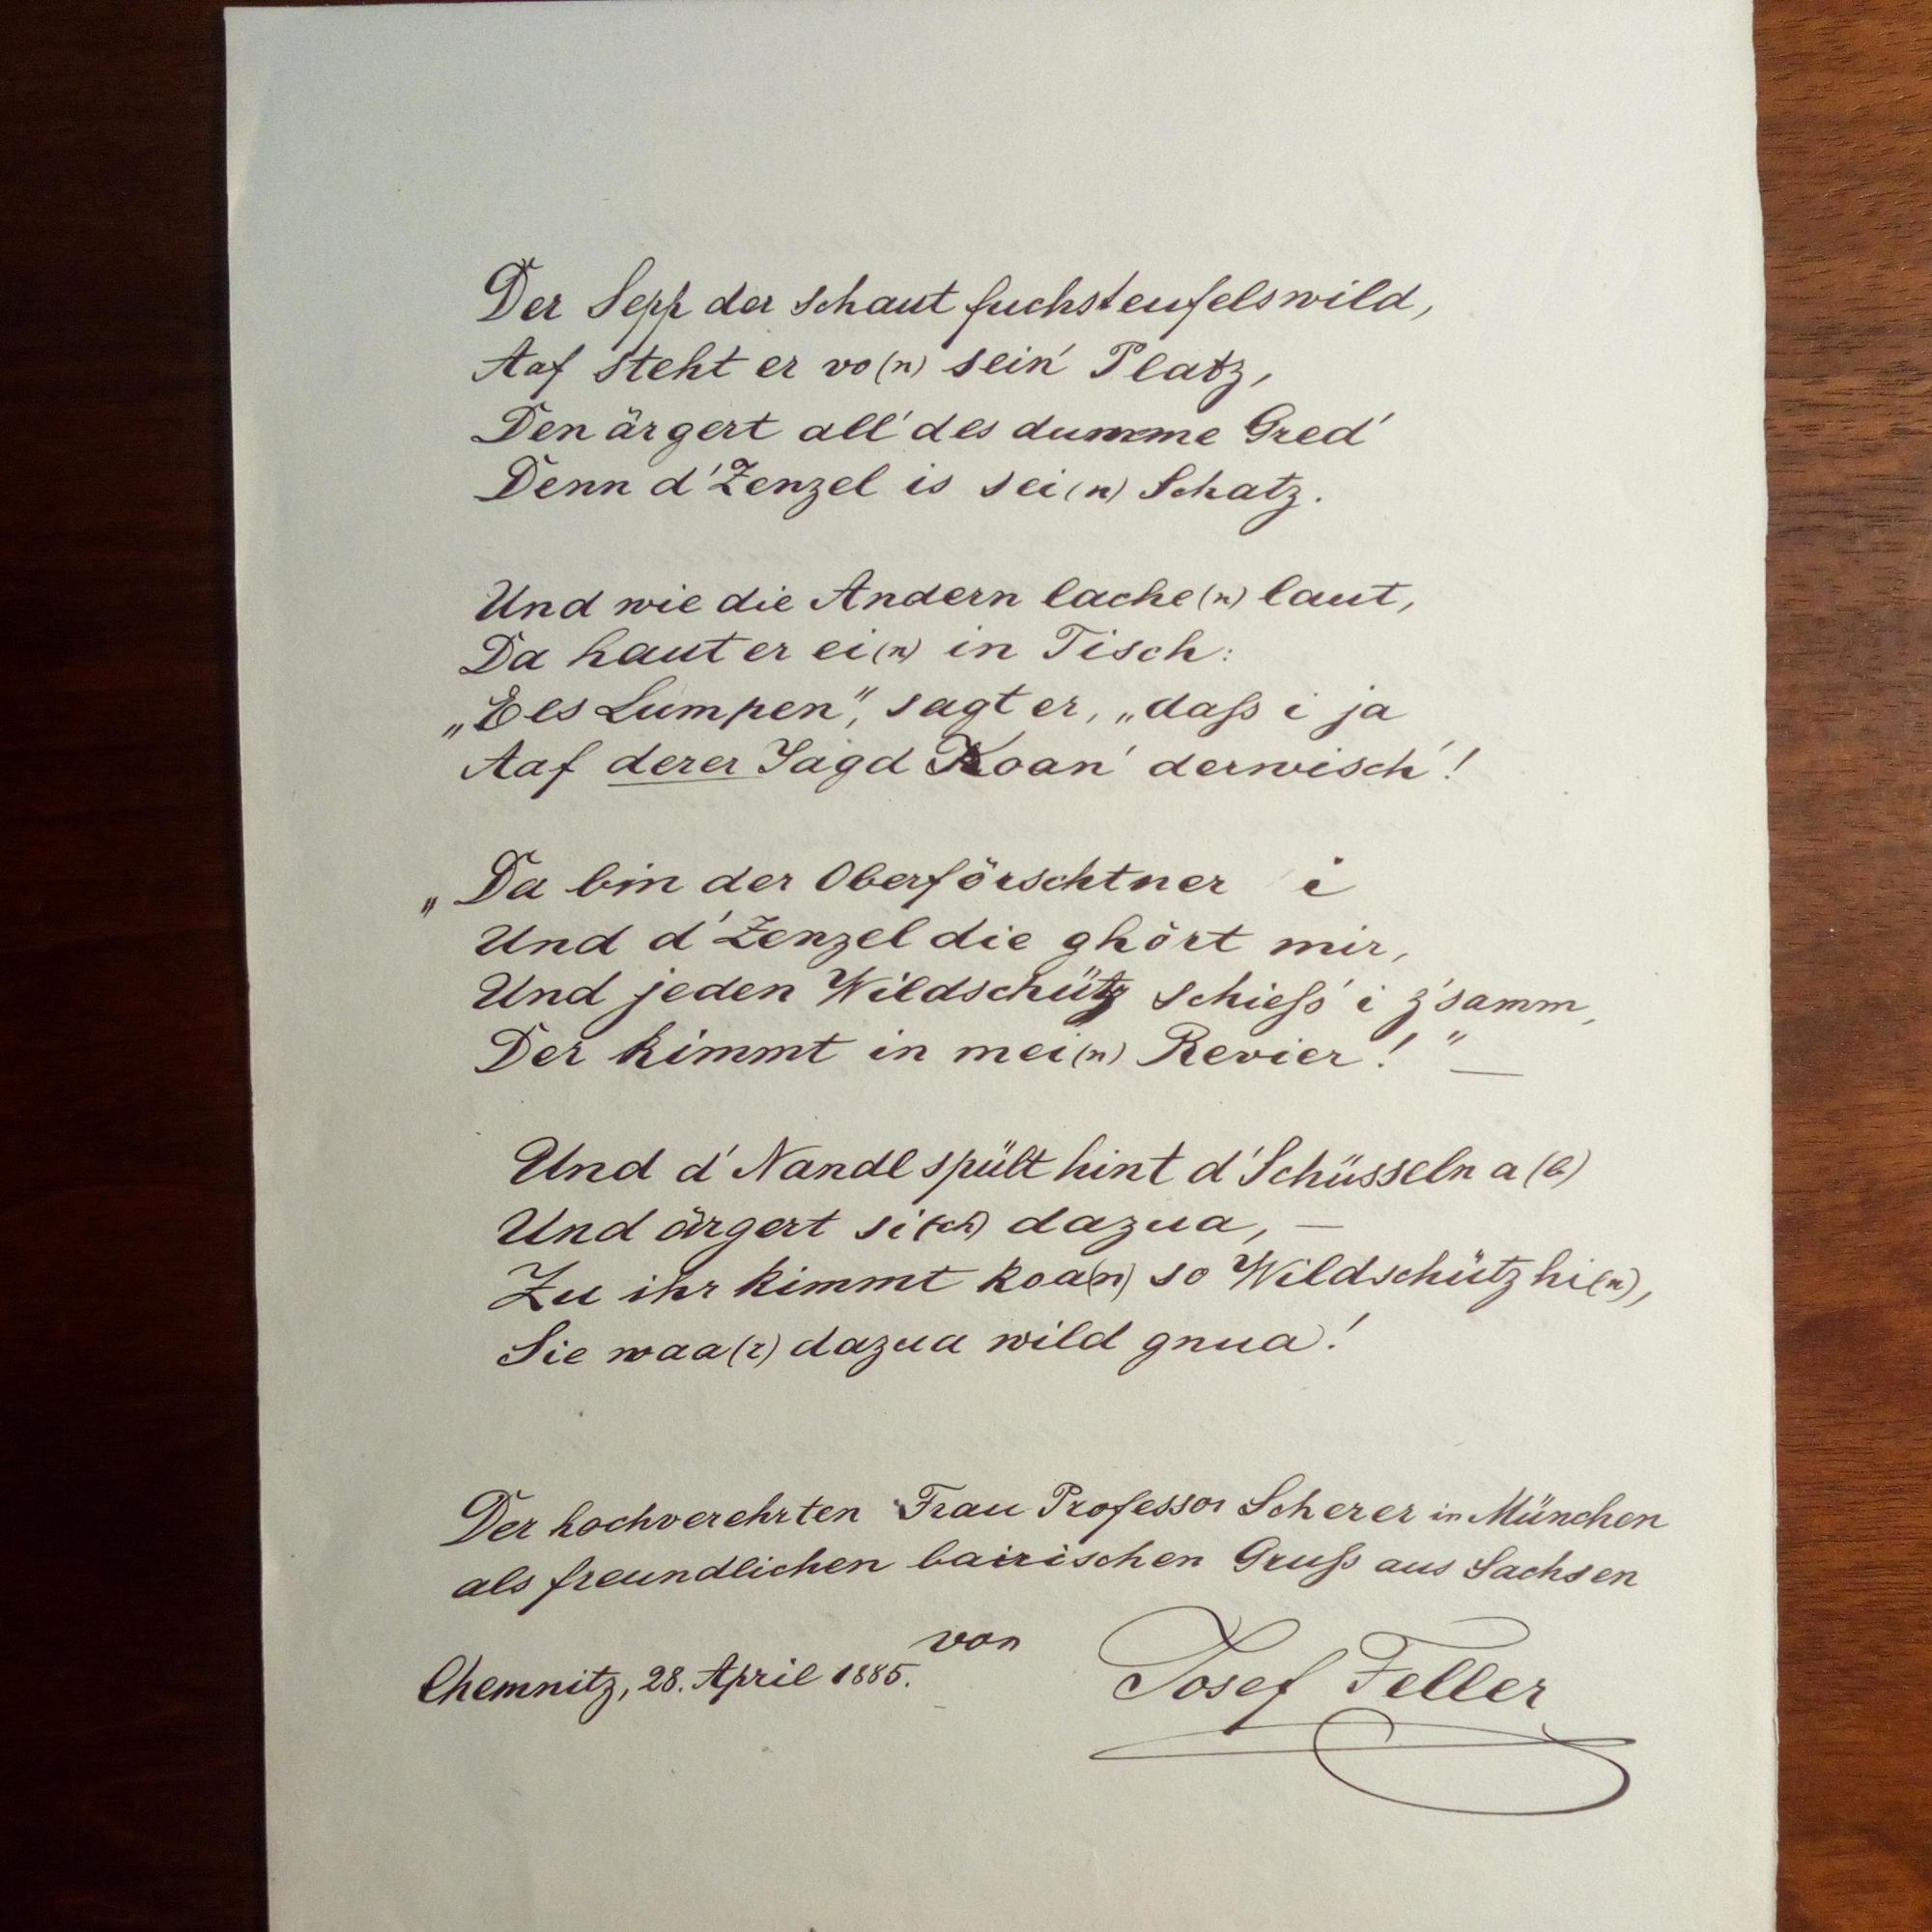 Der Sepp der schaut fuchsteufelswild,
Aaf steht er vo(n) sein' Platz,
Den ärgert all' des dumme Gred'
Denn d'Zenzel is sei(n) Schatz.
Und wie die Andern lache(n) laut,
Da haut er ei(n) in Tisch:
„Ees Lumpen", sagt er, „daß i ja
Aaf derer Jagd Koan' derwisch'!
„Da bin der Oberförschtner i
Und d'Zenzel die ghört mir,
Und jeden Wildschütz schieß' i z'samm,
Der kimmt in mei(n) Revier!" —
Und d'Nandl spült hint d'Schüsseln a(b)
Und ärgert si(ch) dazua, —
Zu ihr kimmt koa(n) so Wildschütz hi(n),
Sie waa(r) dazua wild gnua!
Der hochverehrten Frau Professor Scherer in München
als freundlichen bairischen Gruß aus Sachsen
von
Chemnitz, 28. April 1885. Josef Feller